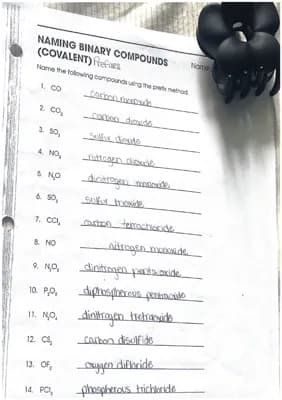 NAMING BINARY COMPOUNDS
(COVALENT) Prefixes
Name
Name the following compounds using the prefix method.
1. CO carbon monoxide
2. CO₂ carbon dioxide
3. SO₂ sulfur dioxide
4. NO₂ nitrogen dioxide
5. N₂O dinitrogen monoxide
6. SO₃ sulfur trioxide
7. CCl₄ carbon tetrachloride
8. NO nitrogen monoxide
9. N₂O₅ dinitrogen pentaoxide
10. P₂O₅ diphospherous pentoxide
11. N₂O₄ dinitrogen tretraoxide
12. CS₂ carbon disulfide
13. OF₂ oxygen difloride
14. PCl₃ phospherous trichloride